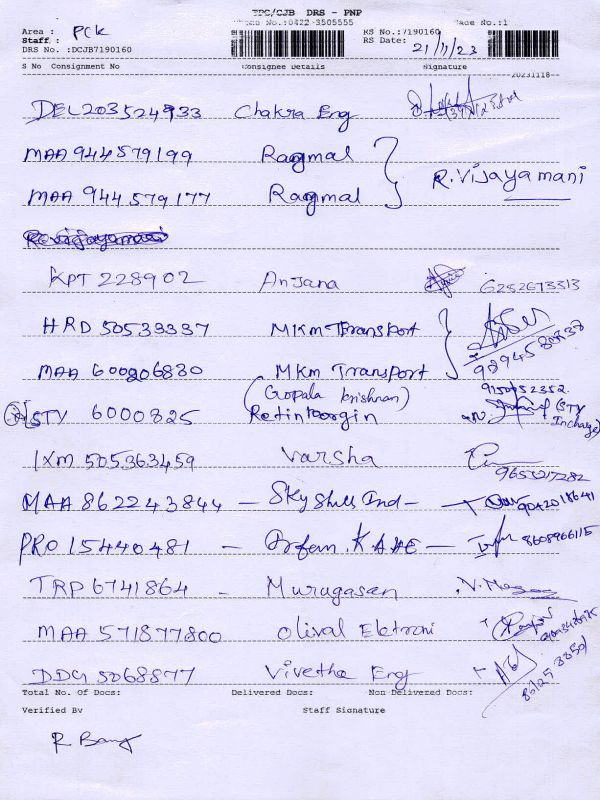 TPC/CJB DRS - PNP
Phone No.:0422-3505555 Page No.:1
Area : PCK RS No.:7190160
Staff : RS Date: 21/11/23
DRS No. :DCJB7190160
S No Consignment No Consignee Details Signature
20231118--
DEL203524933 Chakra Eng
MAA 944579199 Ragmal
R.Vijayamani
MAA 944579177 Ragmal
KPT 228902 Anjana 6252673313
HRD 50533337 MKM Transport
9894580838
MAA 600206830 MKM Transport
(Gopala krishnan) 9150452352
STY 6000825 (STY Incharge)
IXM 505363459 Varsha 9655217282
MAA 862243844 - Ind - 9042018641
PRO 15440481 - 8608966115
TRP 6741864 - Murugasan
MAA 571877800 Olival Elktroni
DDG 5068877 Vivetha Eng
Total No. Of Docs: Delivered Docs: Non Delivered Docs:
Verified By Staff Signature